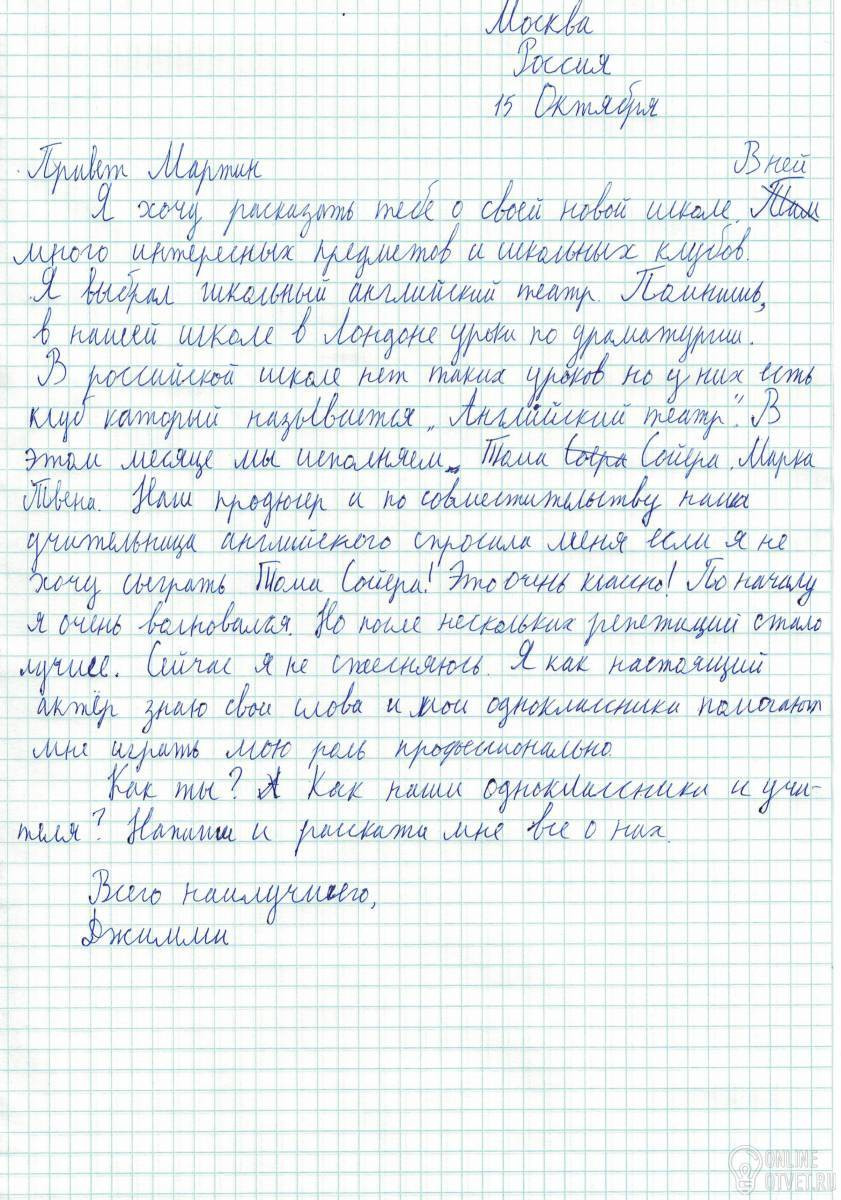 Москва
Россия
15 Октября
Привет Мартин
В ней
Я хочу расказать тебе о своей новой школе. Там
много интересных предметов и школьных клубов.
Я выбрал школьный английский театр. Помнишь,
в нашей школе в Лондоне уроки по драматургии.
В российской школе нет таких уроков но у них есть
клуб каторый называется „Английский театр". В
этом месяце мы исполняем „Тома Соера Сойера" Марка
Твена. Наш продюсер и по совместительству наша
учительница английского спросила меня если я не
хочу сыграть Тома Сойера! Это очень классно! По началу
я очень волновался. Но после нескольких репетиций стало
лучше. Сейчас я не стесняюсь. Я как настоящий
актёр знаю свои слова и мои одноклассники помогают
мне играть мою роль профессионально
Как ты? А Как наши одноклассники и учи-
теля? Напиши и расскажи мне все о них.
Всего наилучшего,
Джимми
ONLINE
OTVET.RU